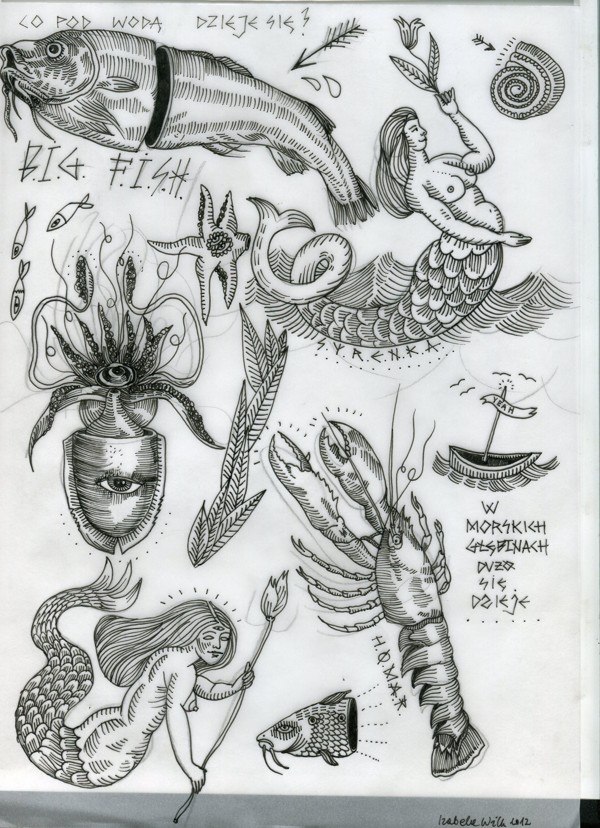 CO POD WODĄ DZIEJE SIĘ?
B.I.G F.I.S.H.
S.Y.R.E.N.K.A.
YEAH
W
MORSKICH
GŁĘBINACH
DUŻO
SIĘ
DZIEJE
H.O.M.A.R.
Izabela Wilk 2012